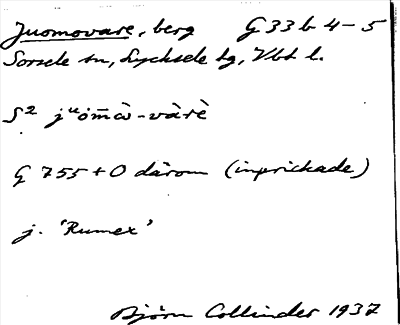 Juomovare, berg G 33 b 4-5
Sorsele sn, Lycksele lg, Vbt l.
S² jᵘo̊m̄ὼ-vàrè
G 755 + O därom (inprickade)
j. 'Rumex'
Björn Collinder 1937